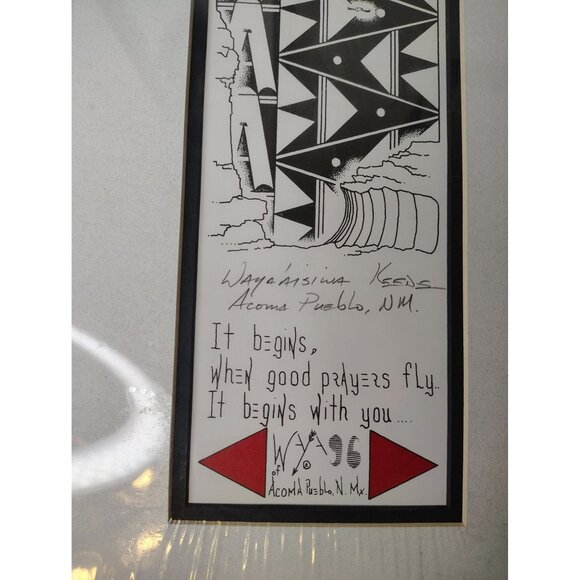 Waya'aisiwa Keene
Acoma Pueblo, NM.
It begins,
When good prayers fly..
It begins with you....
WAYA 96
of
Acoma Pueblo, N. Mx.